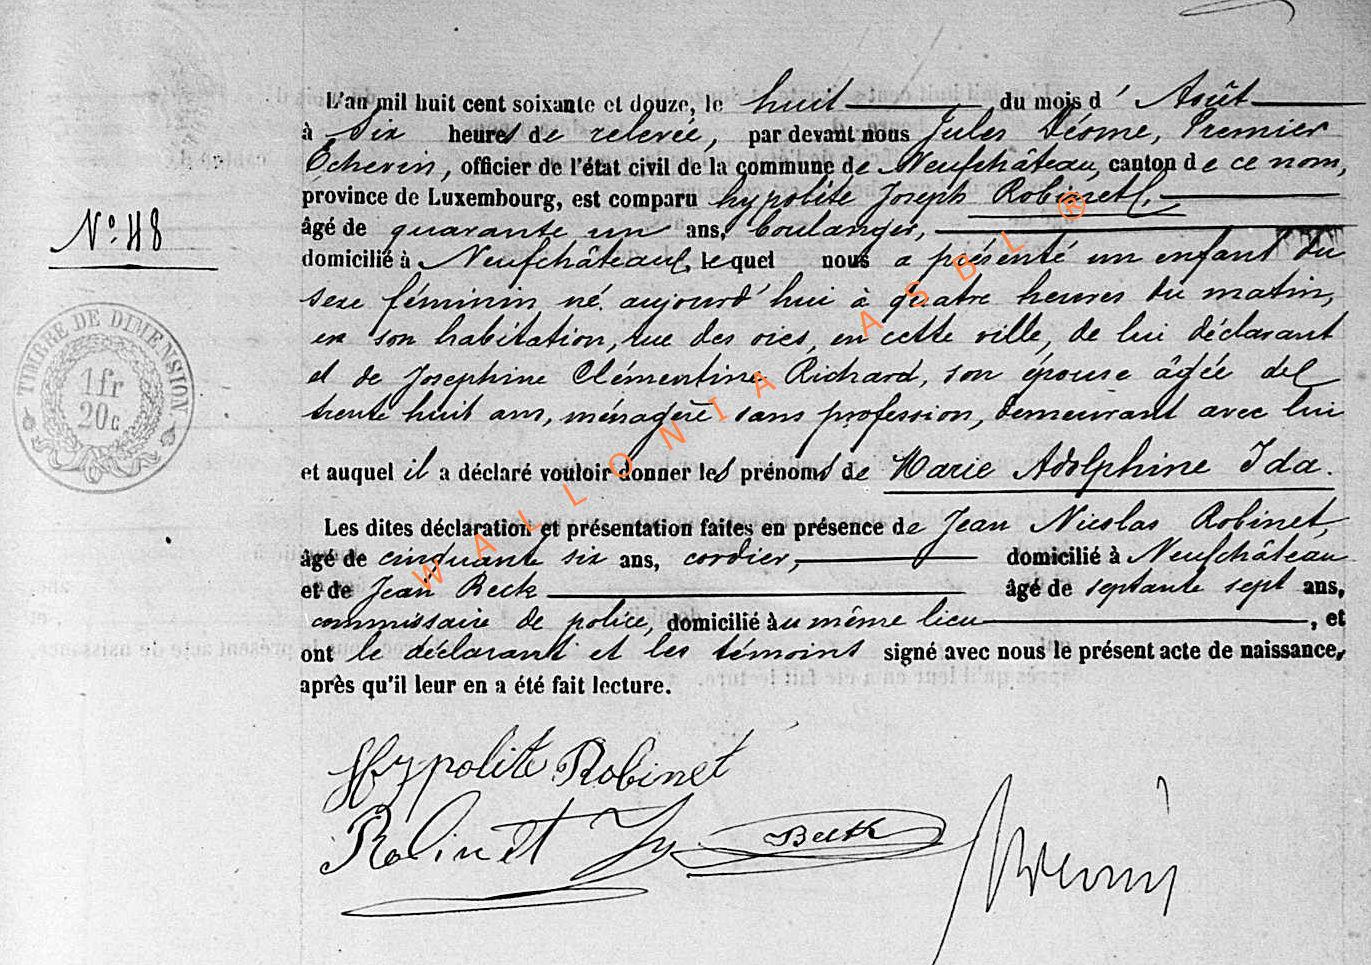 L'an mil huit cent soixante et douze, le huit du mois d' Août
à Six heures de relevée, par devant nous Jules Déome, Premier
Echevin, officier de l'état civil de la commune de Neufchâteau, canton de ce nom,
province de Luxembourg, est comparu hypolite Joseph Robinet,
N°. 48
âgé de quarante un ans, boulanger,
domicilié à Neufchâteau, lequel nous a présenté un enfant du
sexe féminin né aujourd'hui à quatre heures du matin,
en son habitation, rue des oies, en cette ville, de lui déclarant
et de Josephine Clémentine Richard, son épouse âgée de
trente huit ans, ménagère sans profession, demeurant avec lui
et auquel il a déclaré vouloir donner les prénoms de Marie Adolphine Ida.
TIMBRE DE DIMENSION
1 fr
20 c
Les dites déclaration et présentation faites en présence de Jean Nicolas Robinet,
âgé de cinquante six ans, cordier, domicilié à Neufchâteau
et de Jean Beck âgé de septante sept ans,
commissaire de police, domicilié au même lieu, et
ont le déclarant et les témoins signé avec nous le présent acte de naissance,
après qu'il leur en a été fait lecture.
Hypolite Robinet
Robinet Beck
WALLONIA ASBL ®